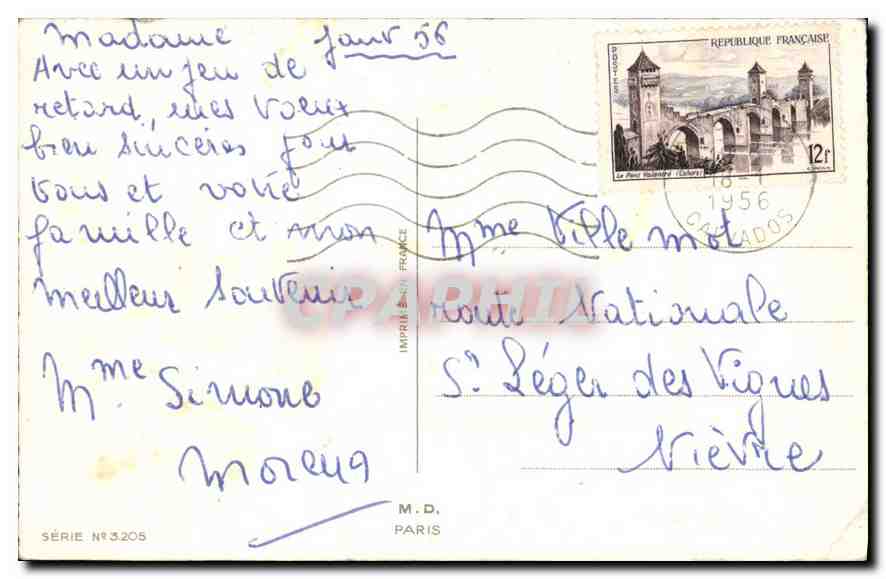 Madame Janv 56
Avec un peu de
retard, mes voeux
bien sincères pour
vous et votre
famille et mon
meilleur souvenir
Mme Simone
Morena
SÉRIE No 3.205
IMPRIMÉ EN FRANCE
M.D.
PARIS
REPUBLIQUE FRANÇAISE
POSTES
Le Pont Valentré (Cahors)
12f
1956
CALVADOS
Mme Ville mot
route Nationale
St Léger des Vignes
Nièvre
CPAPHIL